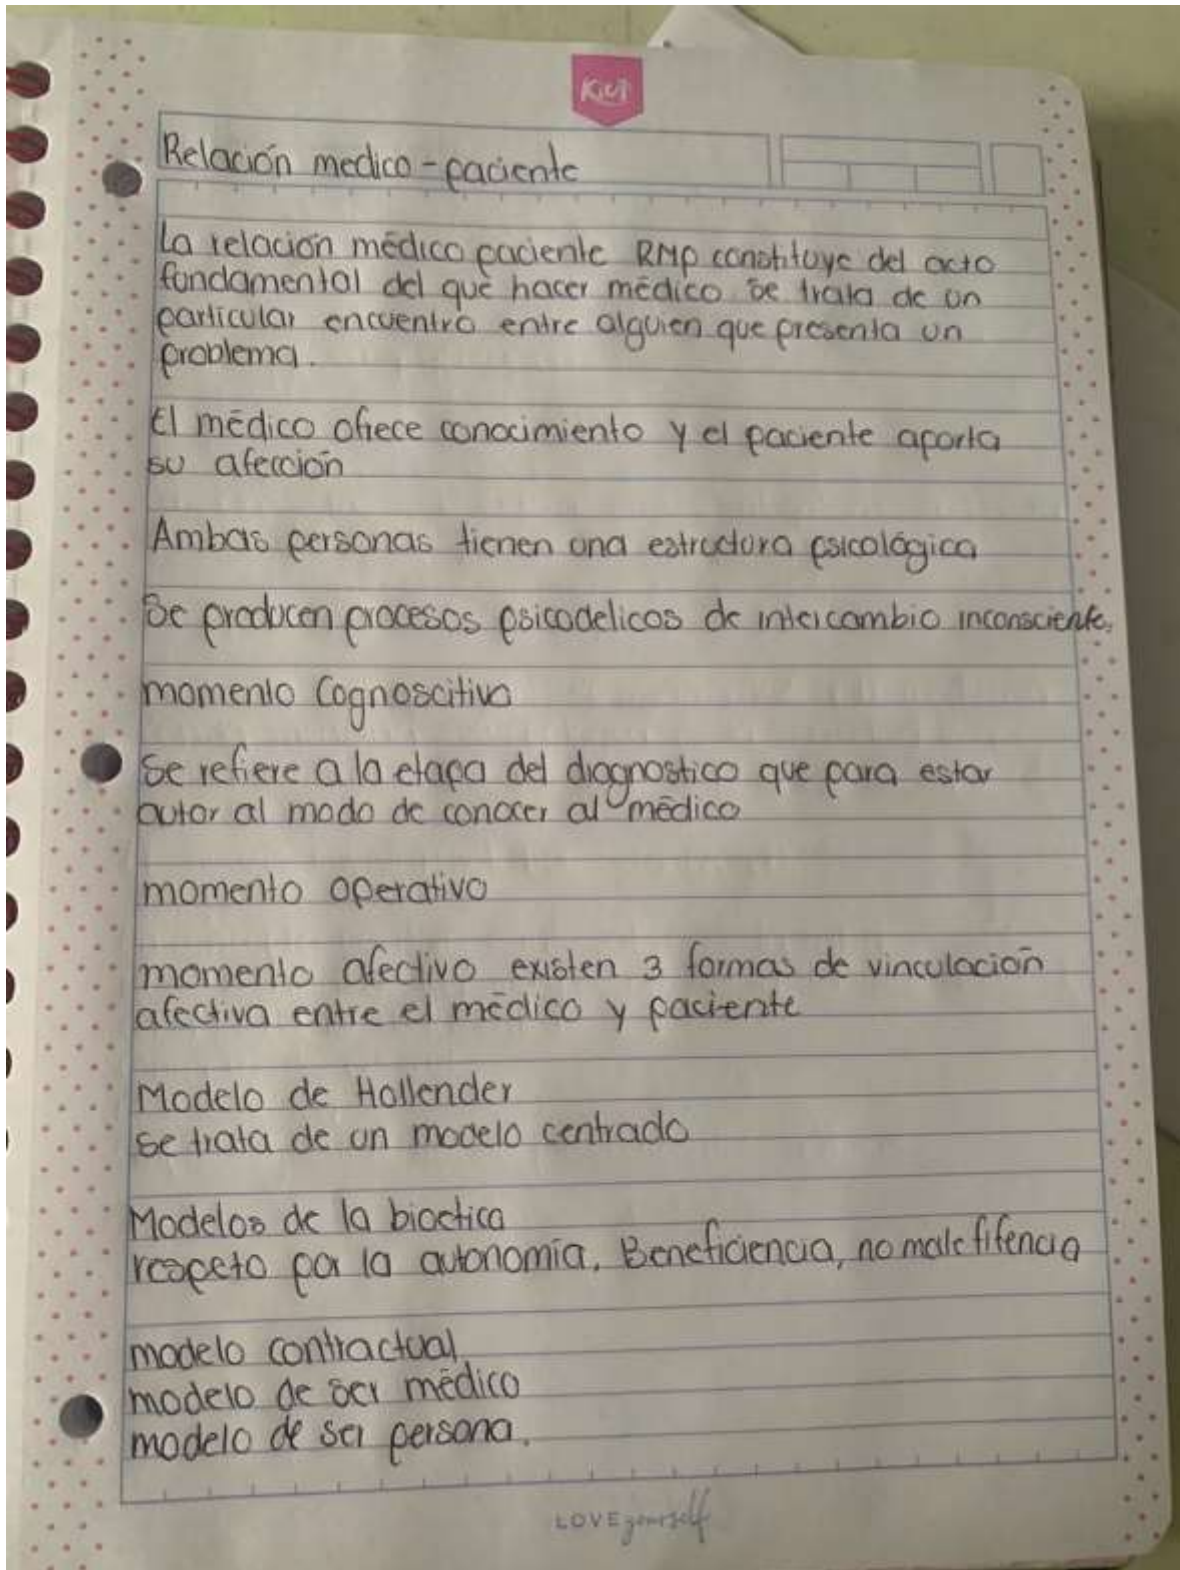 Kiut
Relación medico-paciente
La relación médico paciente RMP constituye del acto
fundamental del que hacer médico se trata de un
particular encuentro entre alguien que presenta un
problema.
El médico ofrece conocimiento y el paciente aporta
su afección
Ambas personas tienen una estructura psicológica
Se producen procesos psicodelicos de intercambio inconsciente.
momento Cognoscitivo
Se refiere a la etapa del diagnostico que para estar
autor al modo de conocer al médico
momento operativo
momento afectivo existen 3 formas de vinculación
afectiva entre el médico y paciente
Modelo de Hollender
se trata de un modelo centrado
Modelos de la bioetica
respeto por la autonomía, Beneficiencia, no malefifencia
modelo contractual
modelo de ser médico
modelo de ser persona.
LOVE yourself